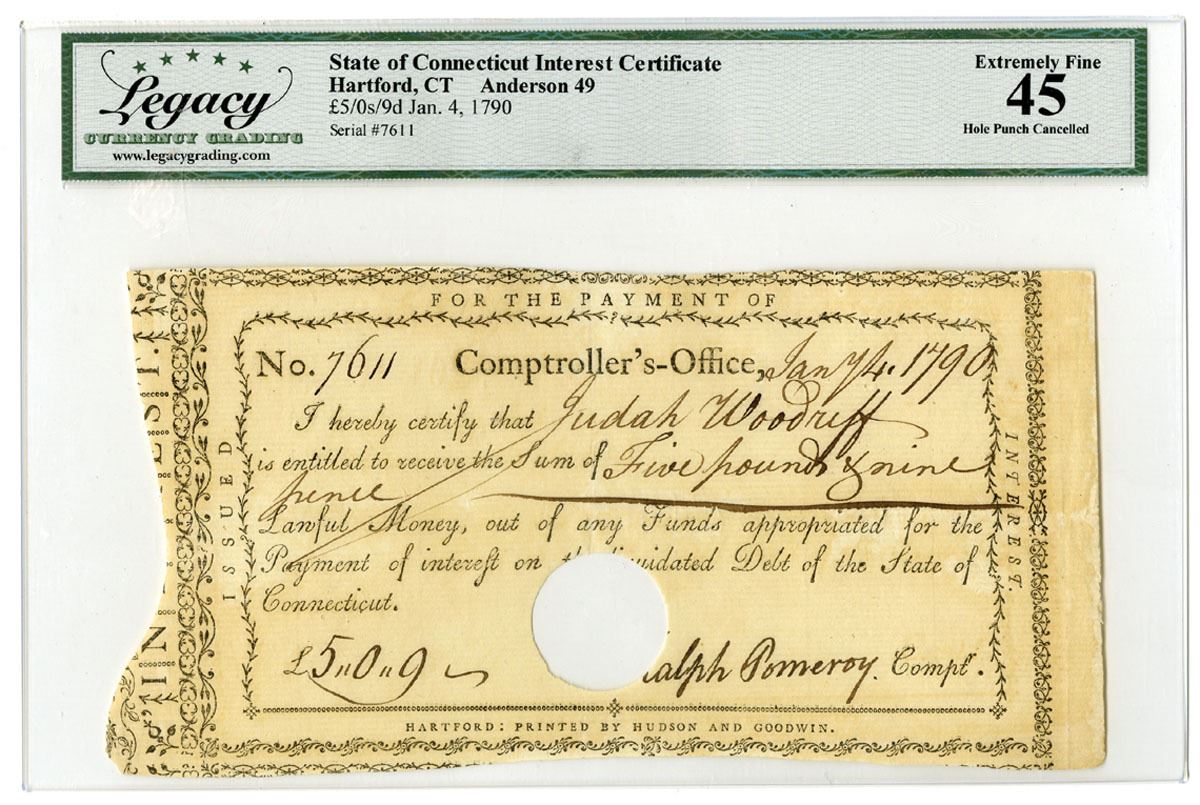 Legacy
CURRENCY GRADING
www.legacygrading.com
State of Connecticut Interest Certificate
Hartford, CT Anderson 49
£5/0s/9d Jan. 4, 1790
Serial #7611
Extremely Fine
45
Hole Punch Cancelled
FOR THE PAYMENT OF
No. 7611 Comptroller's-Office, Jany 4. 1790
I hereby certify that Judah Woodriff
is entitled to receive the Sum of Five pounds & nine
pence
Lawful Money, out of any Funds appropriated for the
Payment of intereſt on the liquidated Debt of the State of
Connecticut.
£5"0"9 Ralph Pomeroy. Comptr.
HARTFORD: PRINTED BY HUDSON AND GOODWIN.
ISSUED
INTEREST.